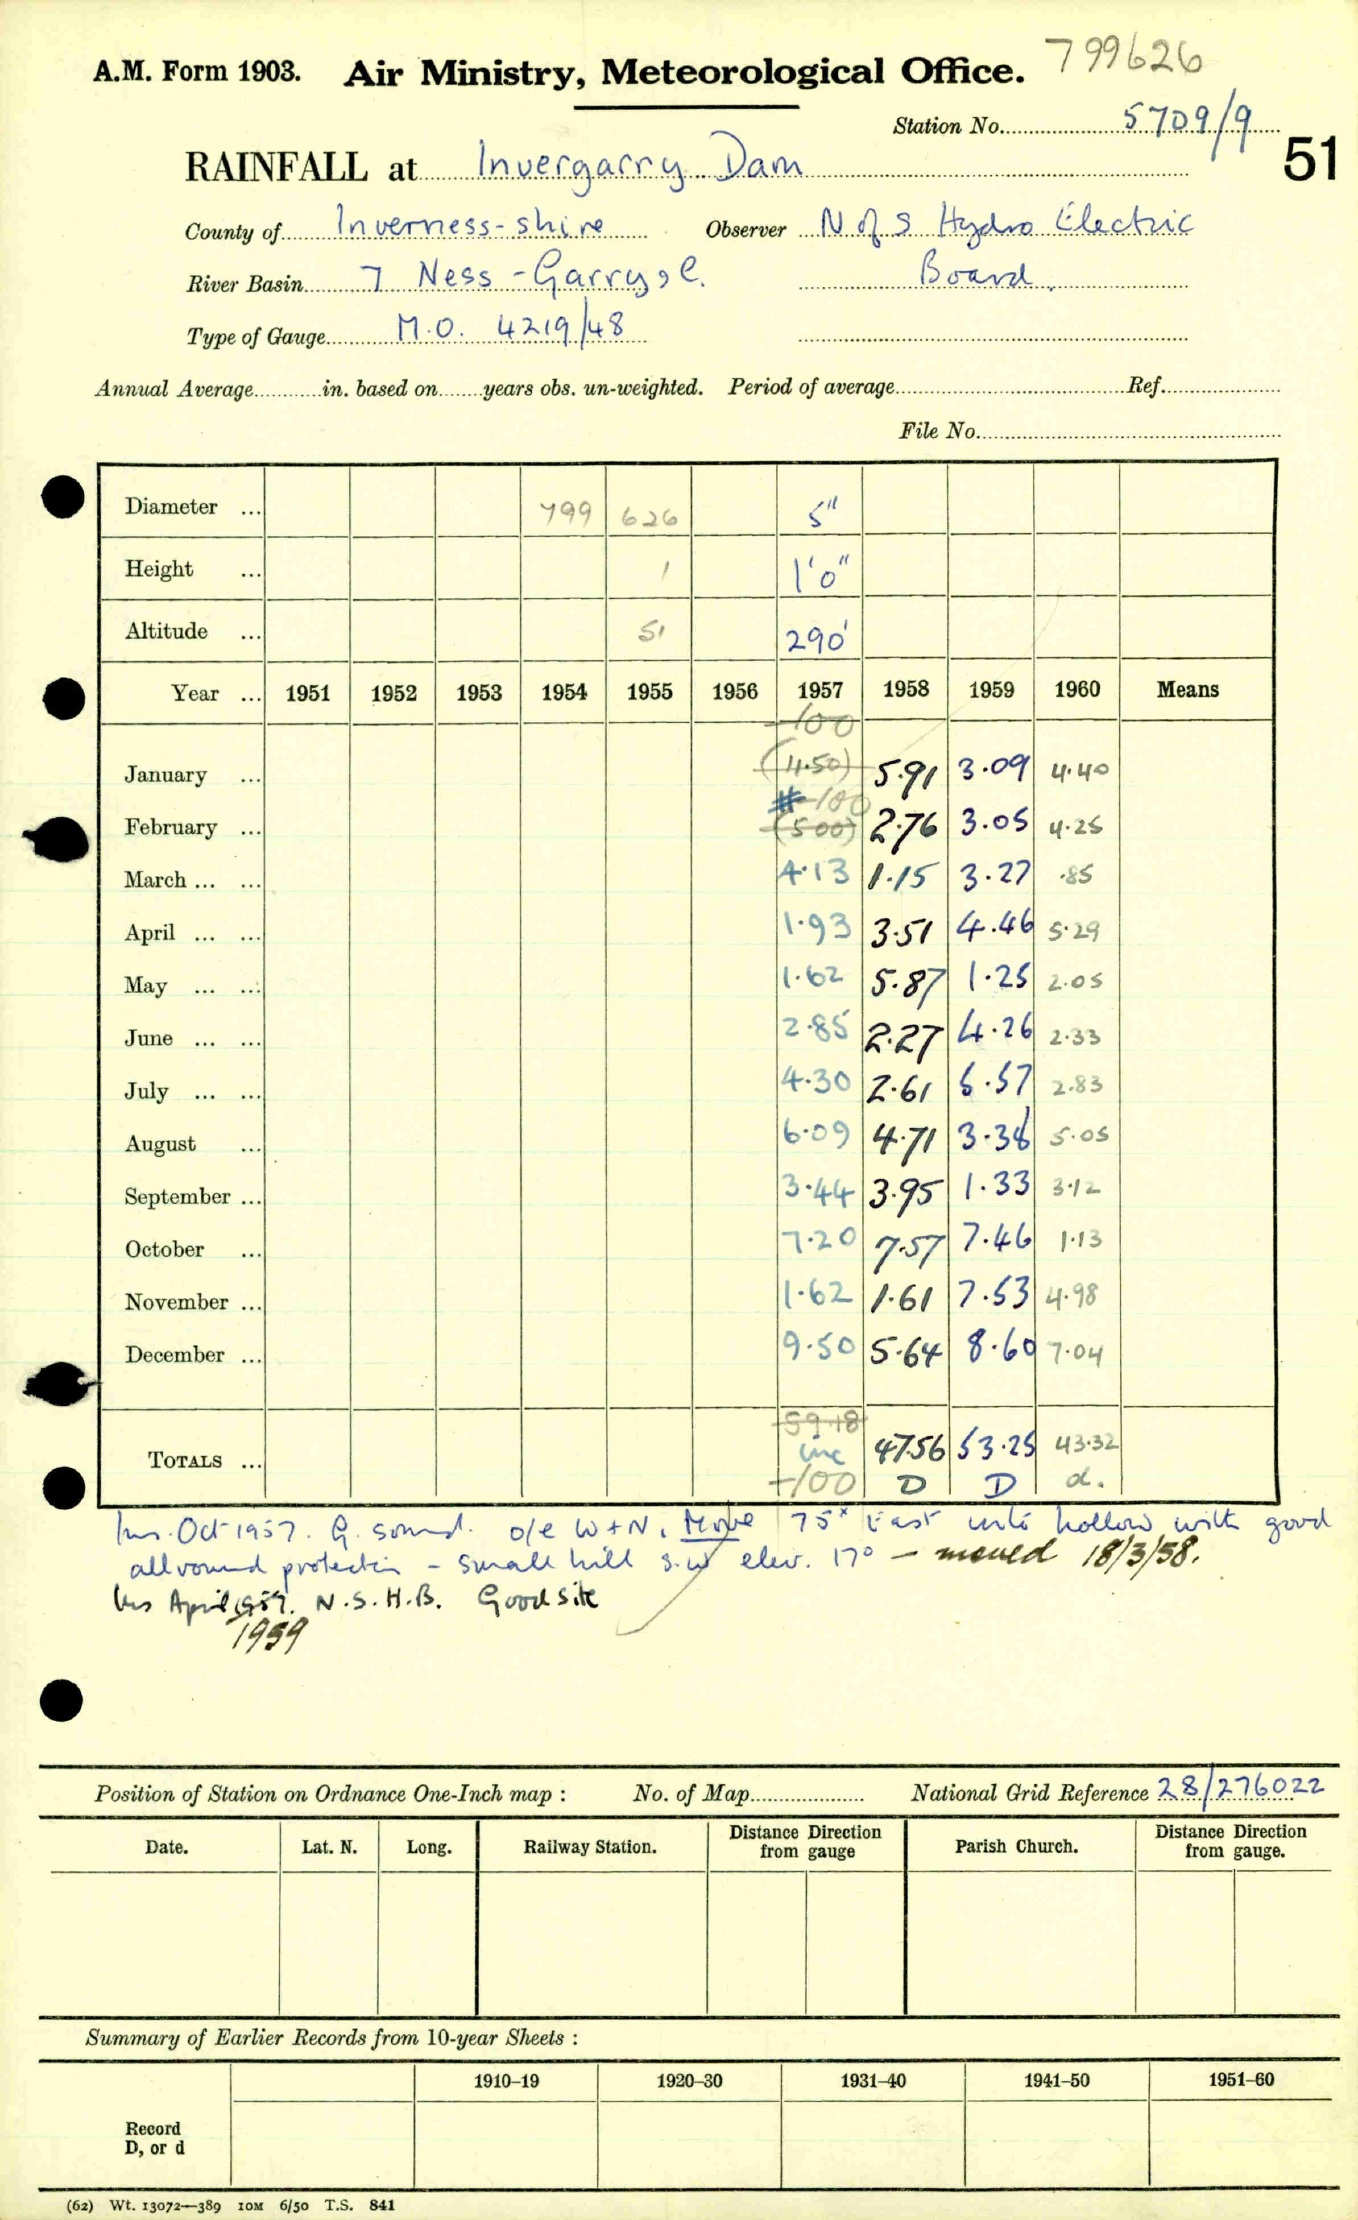 A.M. Form 1903. Air Ministry, Meteorological Office. 799626
Station No. 5709/9
51
RAINFALL at Invergarry Dam
County of Inverness-shire Observer N of S Hydro Electric
River Basin 7 Ness - Garry, l. Board.
Type of Gauge M.O. 4219/48
Annual Average in. based on years obs. un-weighted. Period of average Ref.
File No.
Diameter ... 799 626 5"
Height ... 1 1'0"
Altitude ... 51 290'
Year ... 1951 1952 1953 1954 1955 1956 1957 1958 1959 1960 Means
-100
January ... (4.50) 5.91 3.09 4.40
# -100
February ... (5.00) 2.76 3.05 4.25
March ... ... 4.13 1.15 3.27 .85
April ... ... 1.93 3.51 4.46 5.29
May ... ... 1.62 5.87 1.25 2.05
June ... ... 2.85 2.27 4.26 2.33
July ... ... 4.30 2.61 5.57 2.83
August ... 6.09 4.71 3.38 5.05
September ... 3.44 3.95 1.33 3.12
October ... 7.20 7.57 7.46 1.13
November ... 1.62 1.61 7.53 4.98
December ... 9.50 5.64 8.60 7.04
59.18
TOTALS ... inc 47.56 53.25 43.32
-100 D D d.
Ins. Oct 1957. G. sound. o/e W+N. Move 75x East into hollow with good
allround protection - small hill s.w elev. 17° - moved 18/3/58.
Ins April 1957. N.S.H.B. Good site
1959
Position of Station on Ordnance One-Inch map : No. of Map National Grid Reference 28/276022
Date. Lat. N. Long. Railway Station. Distance Direction from gauge Parish Church. Distance Direction from gauge.
Summary of Earlier Records from 10-year Sheets :
1910–19 1920–30 1931–40 1941–50 1951–60
Record
D, or d
(62) Wt. 13072—389 10M 6/50 T.S. 841